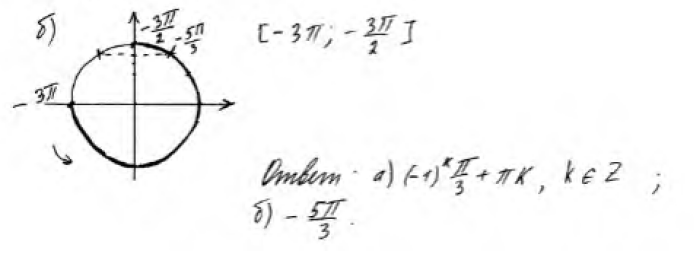 б) -3π/2 [-3π; -3π/2]
-5π/3
-3π
Ответ: а) (-1)^k π/3 + πk, k ∈ Z ;
б) -5π/3.